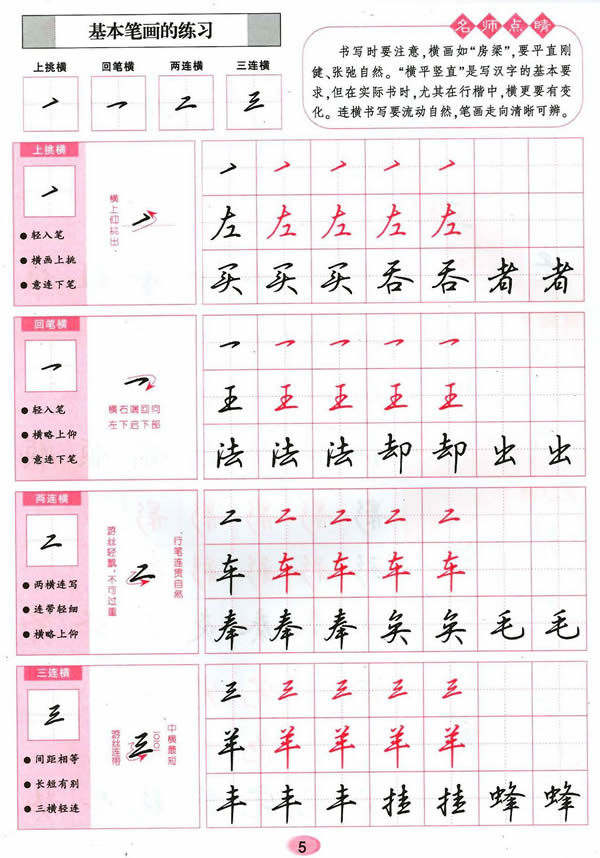 基本笔画的练习
名师点睛
书写时要注意，横画如“房梁”，要平直刚
健、张弛自然。“横平竖直”是写汉字的基本要
求，但在实际书时，尤其在行楷中，横更要有变
化。连横书写要流动自然，笔画走向清晰可辨。
上挑横 回笔横 两连横 三连横
上挑横
轻入笔
横画上挑
意连下笔
左 左 左 左 左
买 买 买 吞 吞 者 者
回笔横
轻入笔
横略上仰
意连下笔
横右端回向
左下启下部
王 王 王 王 王
法 法 法 却 却 出 出
两连横
两横连写
连带轻细
横略上仰
游丝轻飘，不可过重
行笔连贯自然
车 车 车 车 车
奉 奉 奉 奂 奂 毛 毛
三连横
间距相等
长短有别
三横轻连
中横最短
羊 羊 羊 羊 羊
丰 丰 丰 挂 挂 蜂 蜂
5